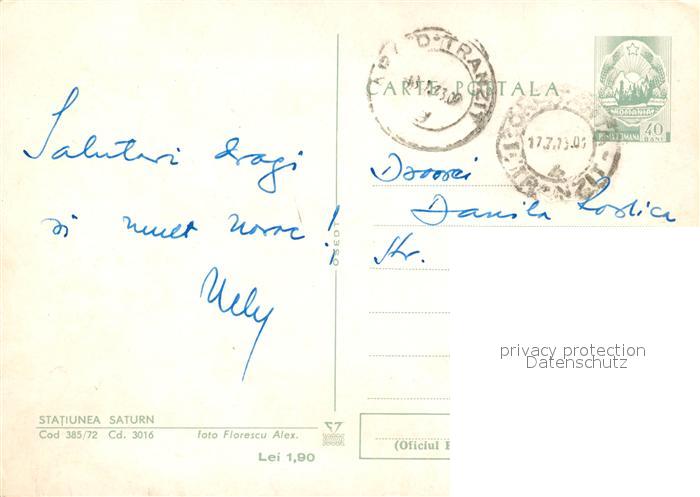 CARTE POSTALA
ROMANIA
POSTA ROMANA 40 BANI
17.7.73.0
Salutari dragi
si mult noroc!
Nely
Doamnei
Danila Rodica
Str.
10350
privacy protection
Datenschutz
STAȚIUNEA SATURN
Cod 385/72 Cd. 3016 foto Florescu Alex.
Lei 1,90
(Oficiul